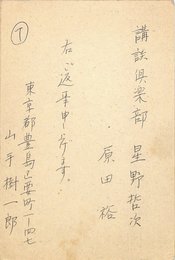 講談倶楽部
星野哲次
原田裕
右ご返事申し上げます。
東京都豊島区要町一ノ四七
山手樹一郎